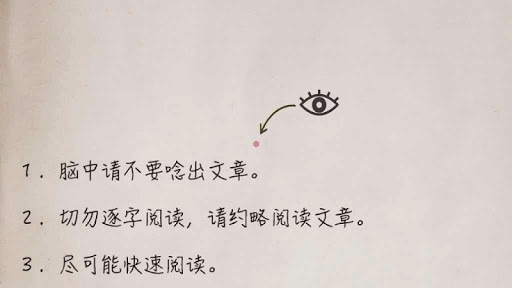 1. 脑中请不要唸出文章。
2. 切勿逐字阅读，请约略阅读文章。
3. 尽可能快速阅读。